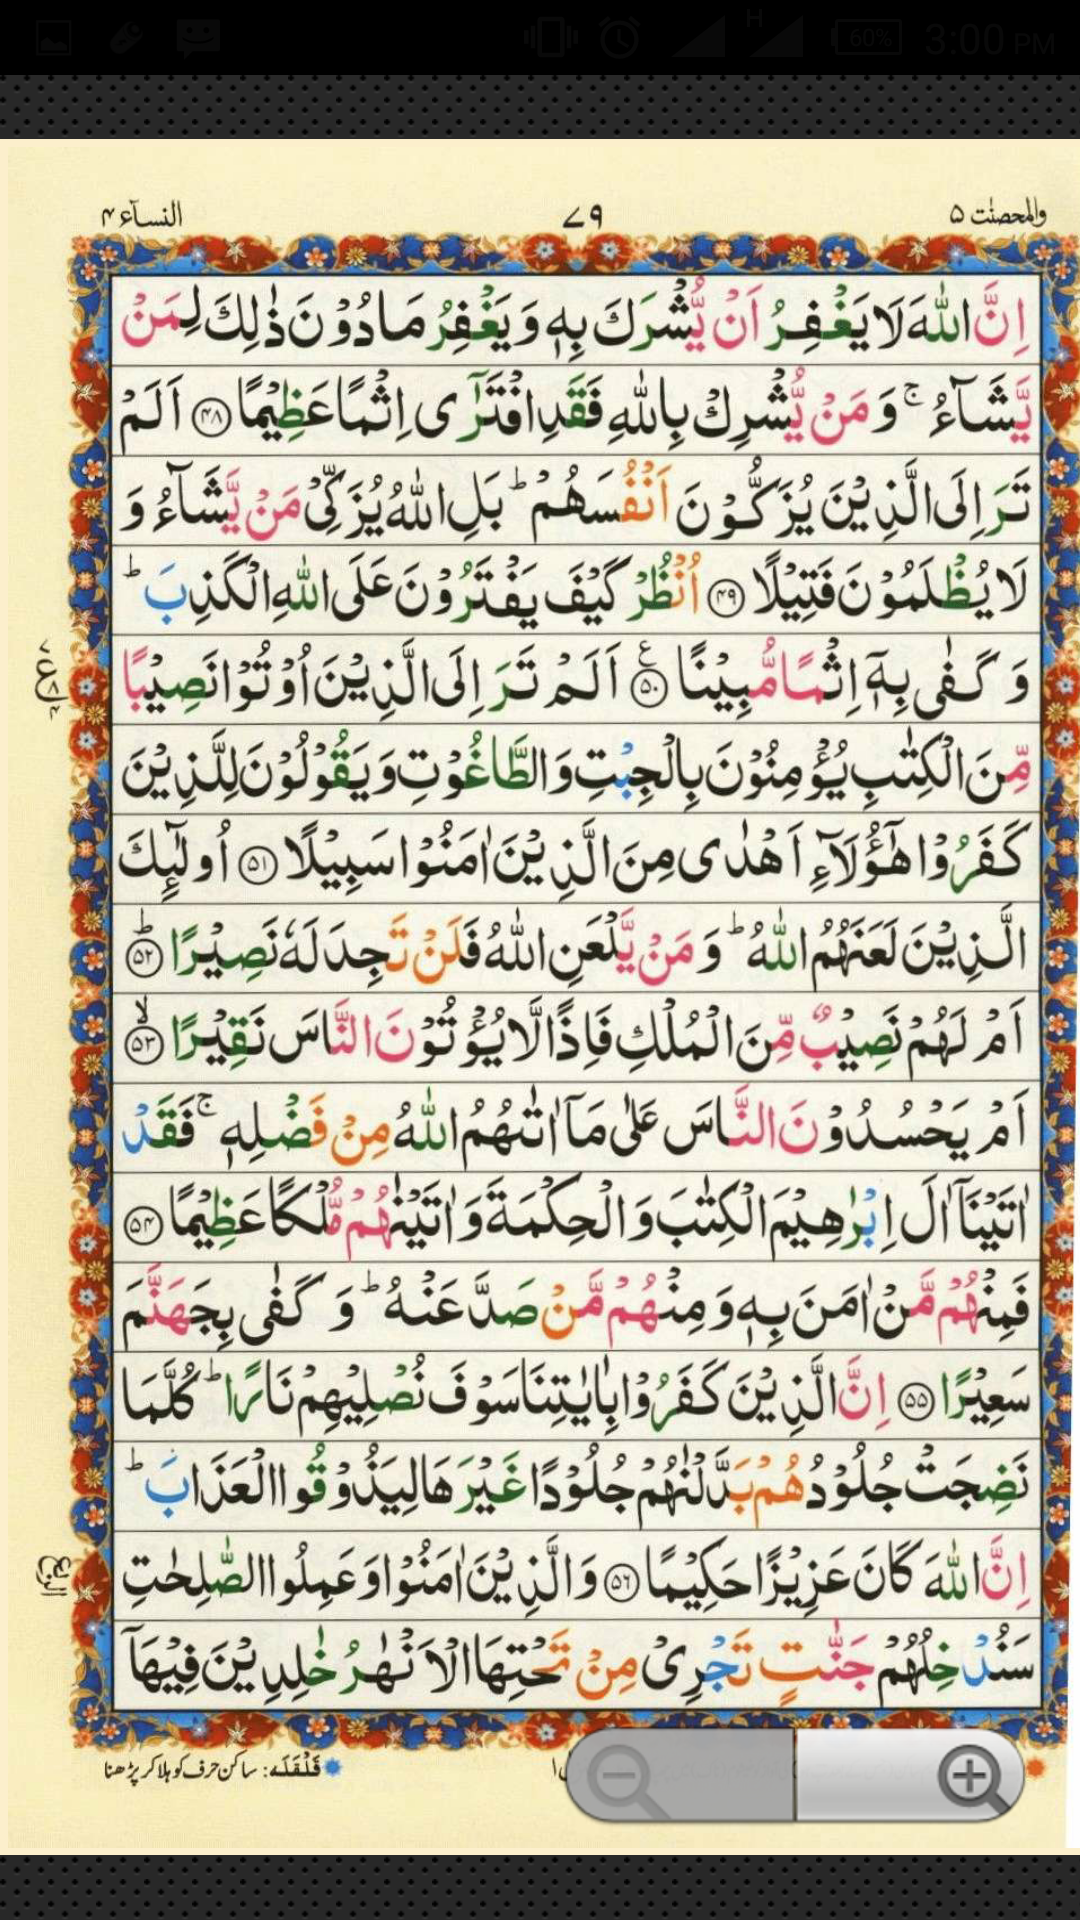 60% 3:00 PM
H
والمحصنٰت ۵ ۷۹ النسآء ۴
اِنَّ اللّٰهَ لَا يَغْفِرُ اَنْ يُّشْرَكَ بِهٖ وَ يَغْفِرُ مَا دُوْنَ ذٰلِكَ لِمَنْ
يَّشَآءُ ۚ وَ مَنْ يُّشْرِكْ بِاللّٰهِ فَقَدِ افْتَرٰۤى اِثْمًا عَظِيْمًا ۴۸ اَلَمْ
تَرَ اِلَى الَّذِيْنَ يُزَكُّوْنَ اَنْفُسَهُمْ ؕ بَلِ اللّٰهُ يُزَكِّىْ مَنْ يَّشَآءُ وَ
لَا يُظْلَمُوْنَ فَتِيْلًا ۴۹ اُنْظُرْ كَيْفَ يَفْتَرُوْنَ عَلَى اللّٰهِ الْكَذِبَ ؕ
وَ كَفٰى بِهٖۤ اِثْمًا مُّبِيْنًا ۵۰ ع اَلَمْ تَرَ اِلَى الَّذِيْنَ اُوْتُوْا نَصِيْبًا
مِّنَ الْكِتٰبِ يُؤْمِنُوْنَ بِالْجِبْتِ وَ الطَّاغُوْتِ وَ يَقُوْلُوْنَ لِلَّذِيْنَ
كَفَرُوْا هٰۤؤُلَآءِ اَهْدٰى مِنَ الَّذِيْنَ اٰمَنُوْا سَبِيْلًا ۵۱ اُولٰٓئِكَ
الَّذِيْنَ لَعَنَهُمُ اللّٰهُ ؕ وَ مَنْ يَّلْعَنِ اللّٰهُ فَلَنْ تَجِدَ لَهٗ نَصِيْرًا ؕ ۵۲
اَمْ لَهُمْ نَصِيْبٌ مِّنَ الْمُلْكِ فَاِذًا لَّا يُؤْتُوْنَ النَّاسَ نَقِيْرًا ۙ ۵۳
اَمْ يَحْسُدُوْنَ النَّاسَ عَلٰى مَاۤ اٰتٰىهُمُ اللّٰهُ مِنْ فَضْلِهٖ ۚ فَقَدْ
اٰتَيْنَاۤ اٰلَ اِبْرٰهِيْمَ الْكِتٰبَ وَ الْحِكْمَةَ وَ اٰتَيْنٰهُمْ مُّلْكًا عَظِيْمًا ۵۴
فَمِنْهُمْ مَّنْ اٰمَنَ بِهٖ وَ مِنْهُمْ مَّنْ صَدَّ عَنْهُ ؕ وَ كَفٰى بِجَهَنَّمَ
سَعِيْرًا ۵۵ اِنَّ الَّذِيْنَ كَفَرُوْا بِاٰيٰتِنَا سَوْفَ نُصْلِيْهِمْ نَارًا ؕ كُلَّمَا
نَضِجَتْ جُلُوْدُهُمْ بَدَّلْنٰهُمْ جُلُوْدًا غَيْرَهَا لِيَذُوْقُوا الْعَذَابَ ؕ
اِنَّ اللّٰهَ كَانَ عَزِيْزًا حَكِيْمًا ۵۶ وَ الَّذِيْنَ اٰمَنُوْا وَ عَمِلُوا الصّٰلِحٰتِ
سَنُدْخِلُهُمْ جَنّٰتٍ تَجْرِىْ مِنْ تَحْتِهَا الْاَنْهٰرُ خٰلِدِيْنَ فِيْهَاۤ
قَلْقَلَه: ساکن حرف کو ہلا کر پڑھنا